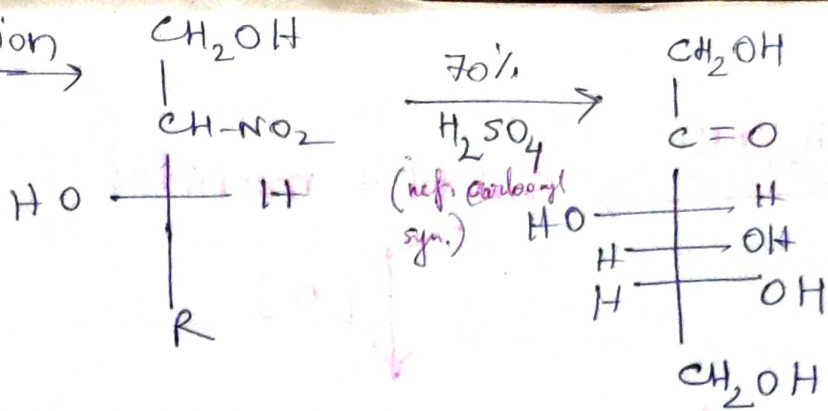 ion
CH2OH
CH-NO2
HO H
R
70%
H2SO4
(nef, carbonyl
syn.)
CH2OH
C=O
HO H
H OH
H OH
CH2OH